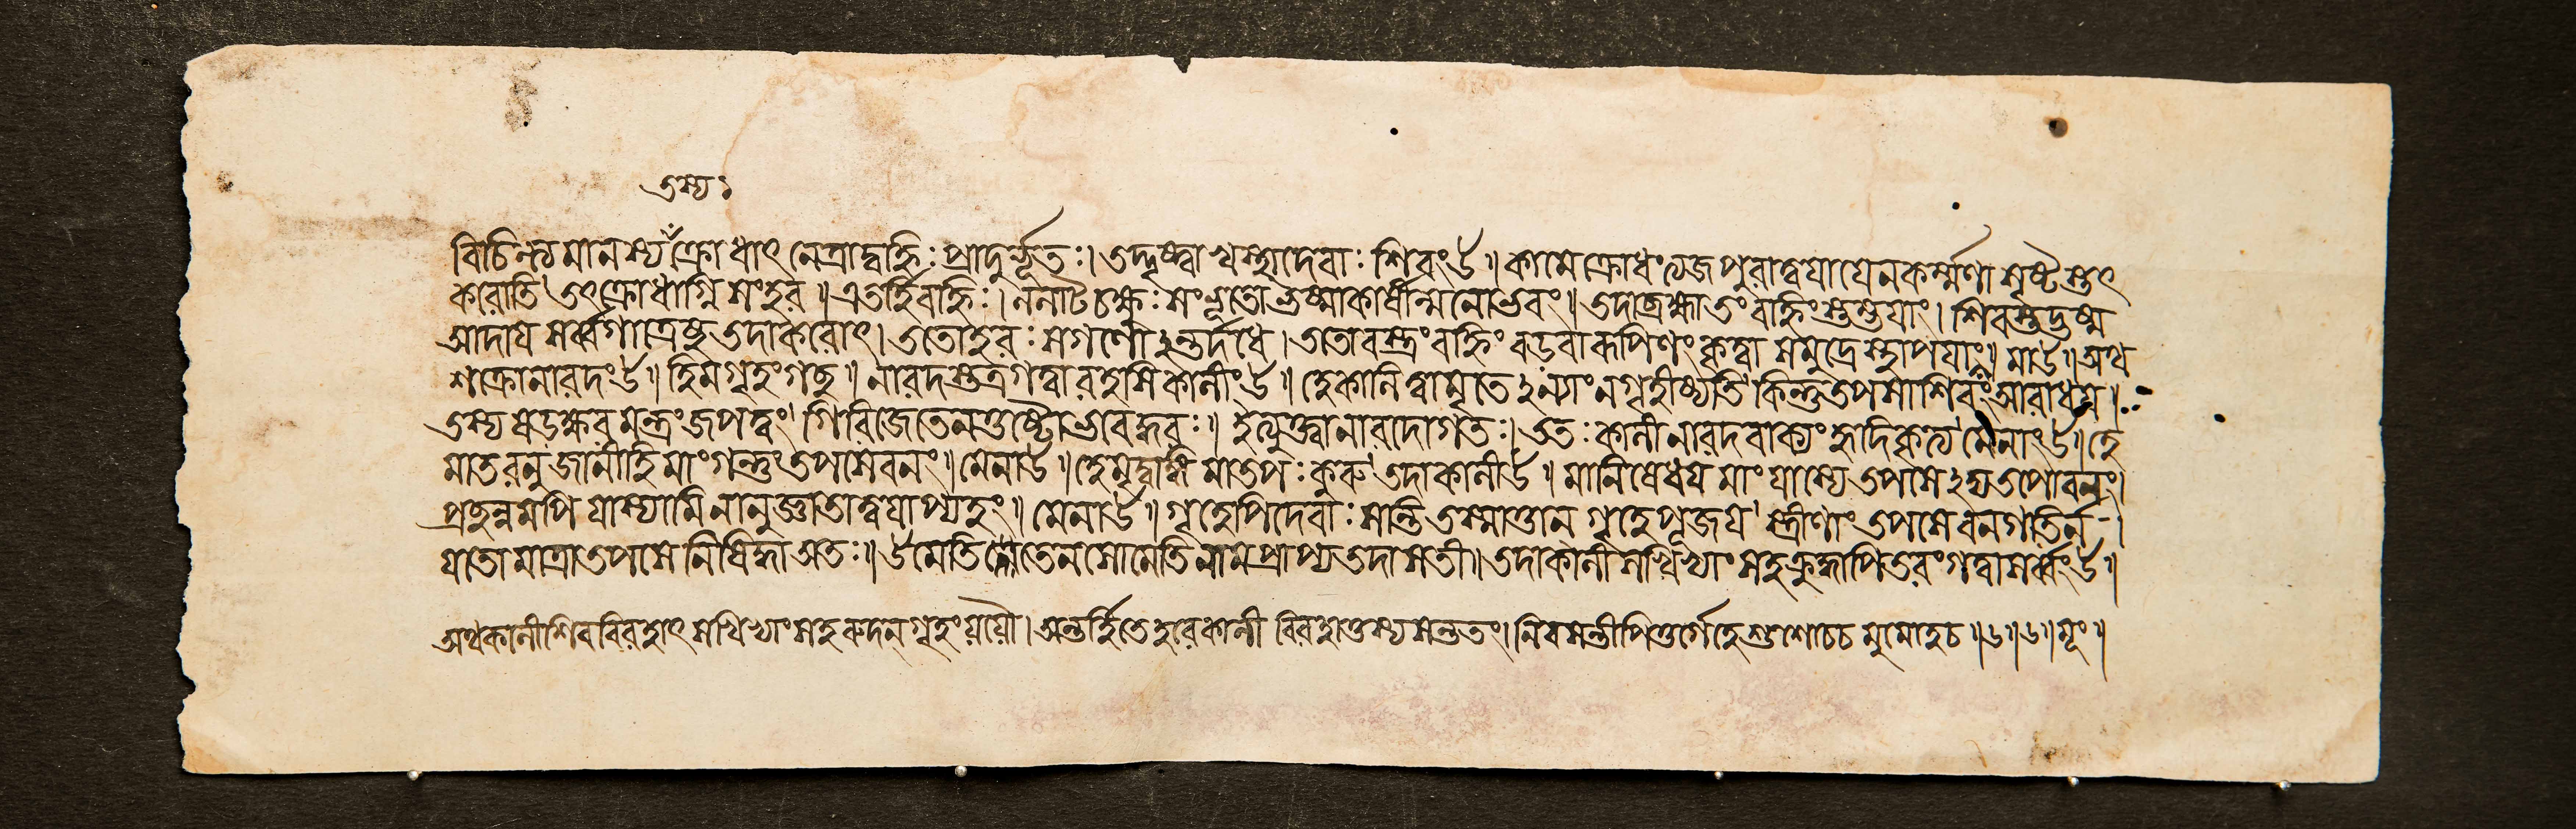 তস্য ঃ
বিচিন্ত্যমানস্য ক্রোধাৎ নেত্রাদ্বহ্নিঃ প্রাদুর্ভূতঃ। তদ্দৃষ্ট্বা খস্থাদেবাঃ শিবং ঊ॥ কামে ক্রোধং ত্যজ পুরা ত্বয়া যেন কর্ম্মণা সৃষ্টস্তৎ
করোতি তৎক্রোধাগ্নি সংহর॥ এতর্হিবহ্নিঃ। ললাট চক্ষুঃ সংভূতো ভস্মাকার্ষীন্মনোভবং॥ তদাব্রহ্মা তং বহ্নিং স্তম্ভয়াং। শিবস্তদ্ভস্ম
আদায় সর্ব্বগাত্রেষু তদাকরোৎ। ততো হরঃ সগণো ঽন্তর্দধে। বহ্নিং বড়বারূপিণং কৃত্বা সমুদ্রে স্থাপয়াং॥ মাঊ॥ অথ
শক্রোনারদং ঊ॥ হিমগৃহং গচ্ছ॥ নারদস্তত্র গত্বা রহসি কালীং ঊ॥ হে কালি ত্বামৃতে ঽন্যাং নগৃহীষ্যতি কিন্তু তপসা শিবং আরাধয়॥
তস্য ষড়ক্ষর মন্ত্রং জপত্বং গিরিজে তেন তুষ্টো ভবেদ্ধরঃ॥ ইত্যুক্ত্বা নারদো গতঃ। ততঃ কালী নারদবাক্যং হৃদি কৃত্য মেনাং ঊ॥ হে
মাতরনুজানীহি মাং গন্তুং তপসে বনং॥ মেনা ঊ॥ হে মৃদ্বাঙ্গি মা তপঃ কুরু তদা কালী ঊ॥ মা নিষেধয় মাং যাস্যে তপসে ঽদ্য তপোবনং।
প্রচ্ছন্নমপি যাস্যামি নানুজ্ঞাতা ত্বয়াপ্যহং॥ মেনা ঊ॥ গৃহেপি দেবাঃ সন্তি তস্মাত্তান গৃহে পূজয় স্ত্রীণাং তপসে বনগতির্ন।
যতো মাত্রা তপসে নিষিদ্ধা অতঃ॥ উমেতি তেন সোমেতি নাম প্রাপ্য তদা সতী॥ তদা কালী সখিভ্যাং সহ পিতরং গত্বা সর্ব্বং ঊ॥
অথ কালী শিববিরহাৎ সখিভ্যাং সহ রুদন্ গৃহং যযৌ। অন্তর্হিতে হরে কালী বিরহাত্তস্য সন্ততং। নিবসন্তী পিতুর্গেহে শুশোচ চ মুমোহ চ॥৬॥৬॥